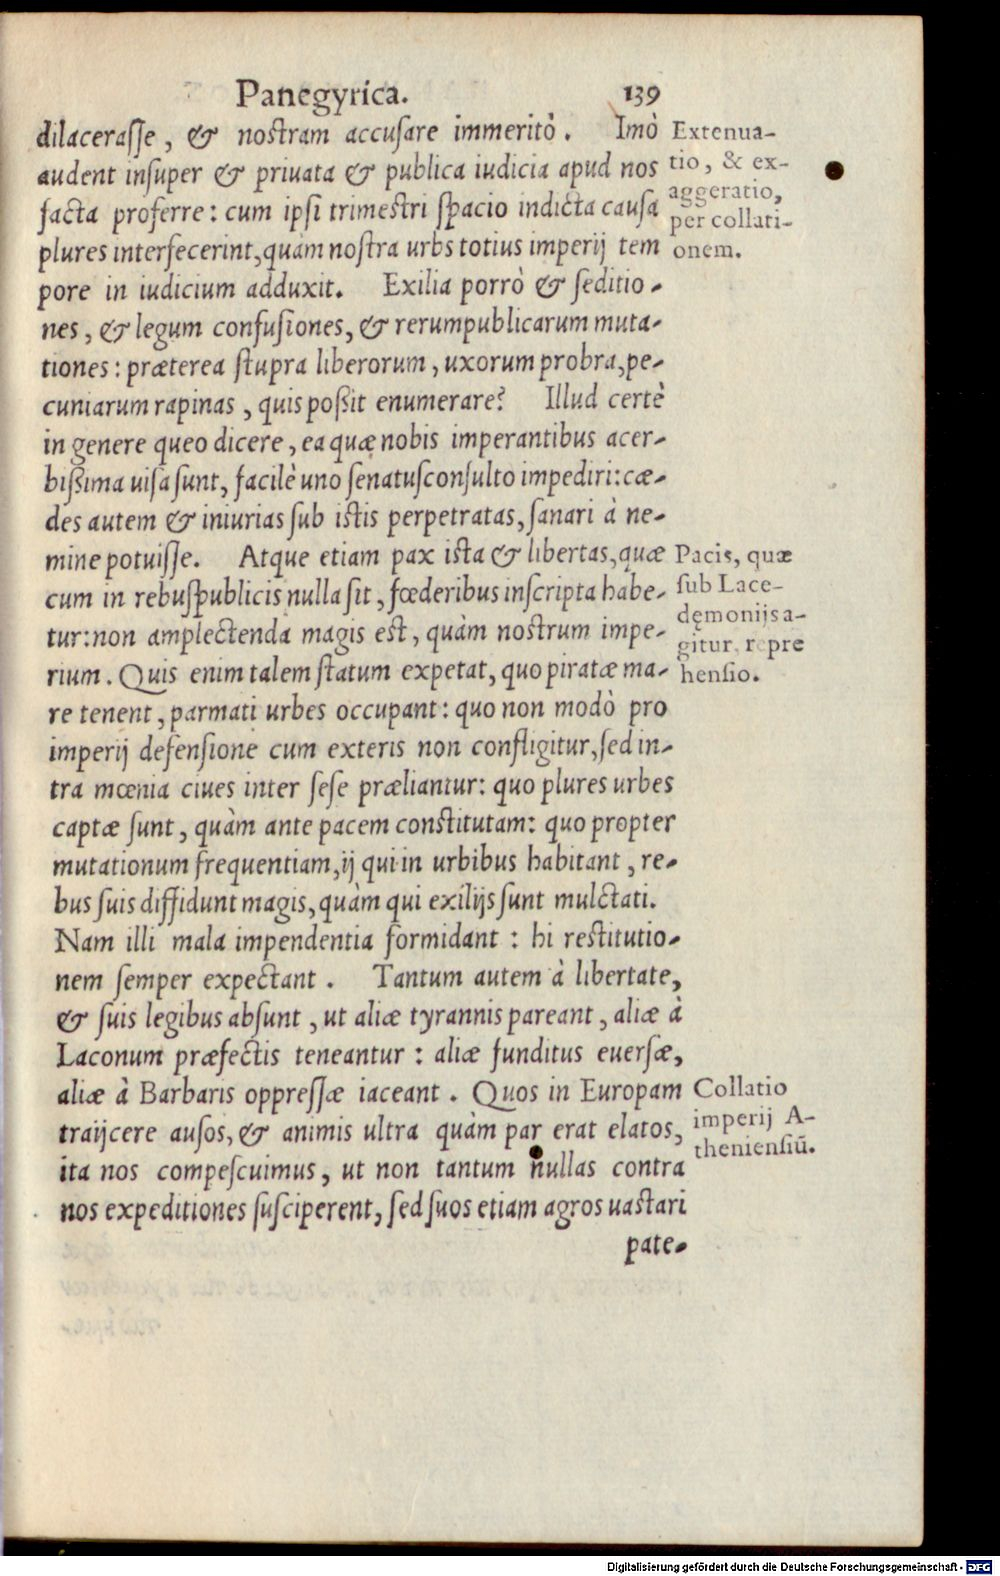 Panegyrica. 139
dilacerasse, & nostram accusare immeritò. Imò
audent insuper & priuata & publica iudicia apud nos
facta proferre: cum ipsi trimestri spacio indicta causa
plures interfecerint, quàm nostra urbs totius imperij tem
pore in iudicium adduxit. Exilia porrò & seditio-
nes, & legum confusiones, & rerumpublicarum muta-
tiones: præterea stupra liberorum, uxorum probra, pe-
cuniarum rapinas, quis poßit enumerare? Illud certè
in genere queo dicere, ea quæ nobis imperantibus acer-
bißima uisa sunt, facilè uno senatusconsulto impediri: cæ-
des autem & iniurias sub istis perpetratas, sanari à ne-
mine potuisse. Atque etiam pax ista & libertas, quæ
cum in rebuspublicis nulla sit, fœderibus inscripta habe-
tur: non amplectenda magis est, quàm nostrum impe-
rium. Quis enim talem statum expetat, quo piratæ ma-
re tenent, parmati urbes occupant: quo non modò pro
imperij defensione cum exteris non confligitur, sed in-
tra mœnia ciues inter sese præliantur: quo plures urbes
captæ sunt, quàm ante pacem constitutam: quo propter
mutationum frequentiam, ij qui in urbibus habitant, re-
bus suis diffidunt magis, quàm qui exilijs sunt mulctati.
Nam illi mala impendentia formidant: hi restitutio-
nem semper expectant. Tantum autem à libertate,
& suis legibus absunt, ut aliæ tyrannis pareant, aliæ à
Laconum præfectis teneantur: aliæ funditus euersæ,
aliæ à Barbaris oppressæ iaceant. Quos in Europam
traijcere ausos, & animis ultra quàm par erat elatos,
ita nos compescuimus, ut non tantum nullas contra
nos expeditiones susciperent, sed suos etiam agros uastari
pate-
Extenua-
tio, & ex-
aggeratio,
per collati-
onem.
Pacis, quæ
sub Lace-
dęmonijs a-
gitur, repre
hensio.
Collatio
imperij A-
theniensiū.
Digitalisierung gefördert durch die Deutsche Forschungsgemeinschaft - DFG